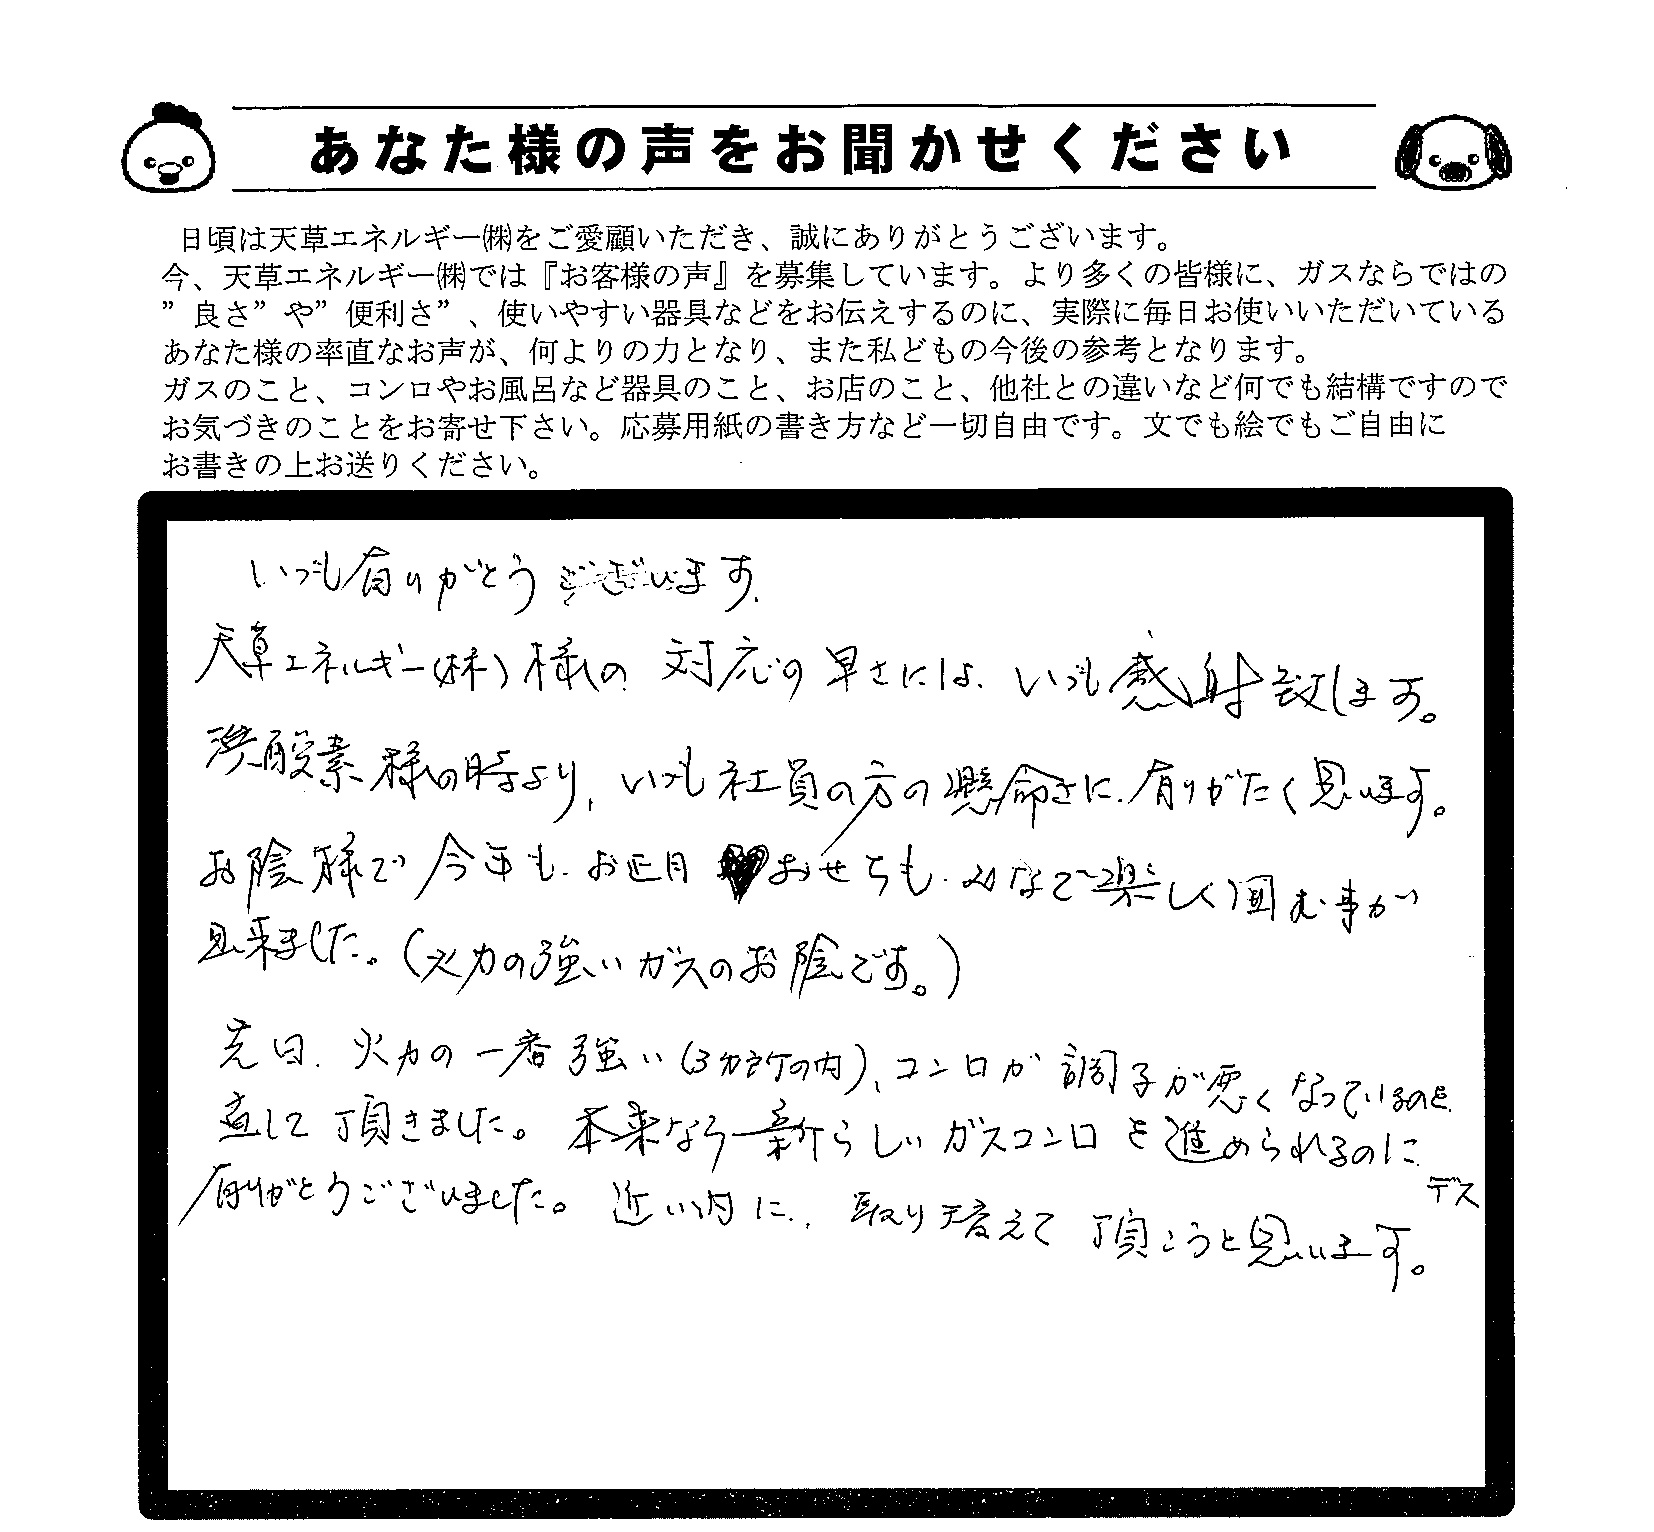 あなた様の声をお聞かせください
日頃は天草エネルギー㈱をご愛顧いただき、誠にありがとうございます。
今、天草エネルギー㈱では『お客様の声』を募集しています。より多くの皆様に、ガスならではの
”良さ”や”便利さ”、使いやすい器具などをお伝えするのに、実際に毎日お使いいただいている
あなた様の率直なお声が、何よりの力となり、また私どもの今後の参考となります。
ガスのこと、コンロやお風呂など器具のこと、お店のこと、他社との違いなど何でも結構ですので
お気づきのことをお寄せ下さい。応募用紙の書き方など一切自由です。文でも絵でもご自由に
お書きの上お送りください。
いつも有りがとうございます。
天草エネルギー(株)様の対応の早さには、いつも感射致します。
酸素様の時より、いつも社員の方の懸命さに、有りがたく思います。
お陰様で今年も、お正月おせちも、みなで楽しく囲む事が
出来ました。(火力の強いガスのお陰です。)
先日、火力の一番強い(3カ所の内)、コンロが調子が悪くなっているのを、
直して頂きました。本来なら新らしいガスコンロを進められるのに、
有りがとうございました。近い内に、取り変えて頂こうと思います。
デス